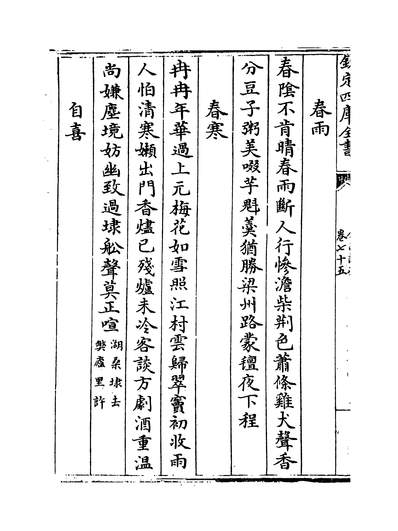 欽定四庫全書
卷七十五
春雨
春陰不肯晴春雨斷人行慘澹柴荆色蕭條雞犬聲香
分豆子粥美啜芋魁羹猶勝梁州路蒙氊夜下程
春寒
冉冉年華過上元梅花如雪照江村雲歸翠竇初收雨
人怕清寒嬾出門香燼已殘爐未冷客談方劇酒重温
尚嫌塵境妨幽致過埭船聲莫正喧湖桑埭去
弊廬里許
自喜